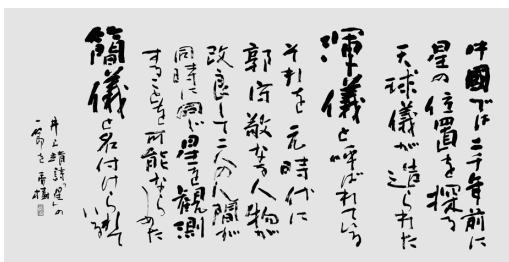 中國では二千年前に
星の位置を探る
天球儀が造られた
渾儀と呼ばれている
それを元時代に
郭守敬なる人物が
改良して二人の人間が
同時に同じ星を観測
することを可能ならしめた
簡儀と名付けられて
いる
井上靖詩「星」の
一節を